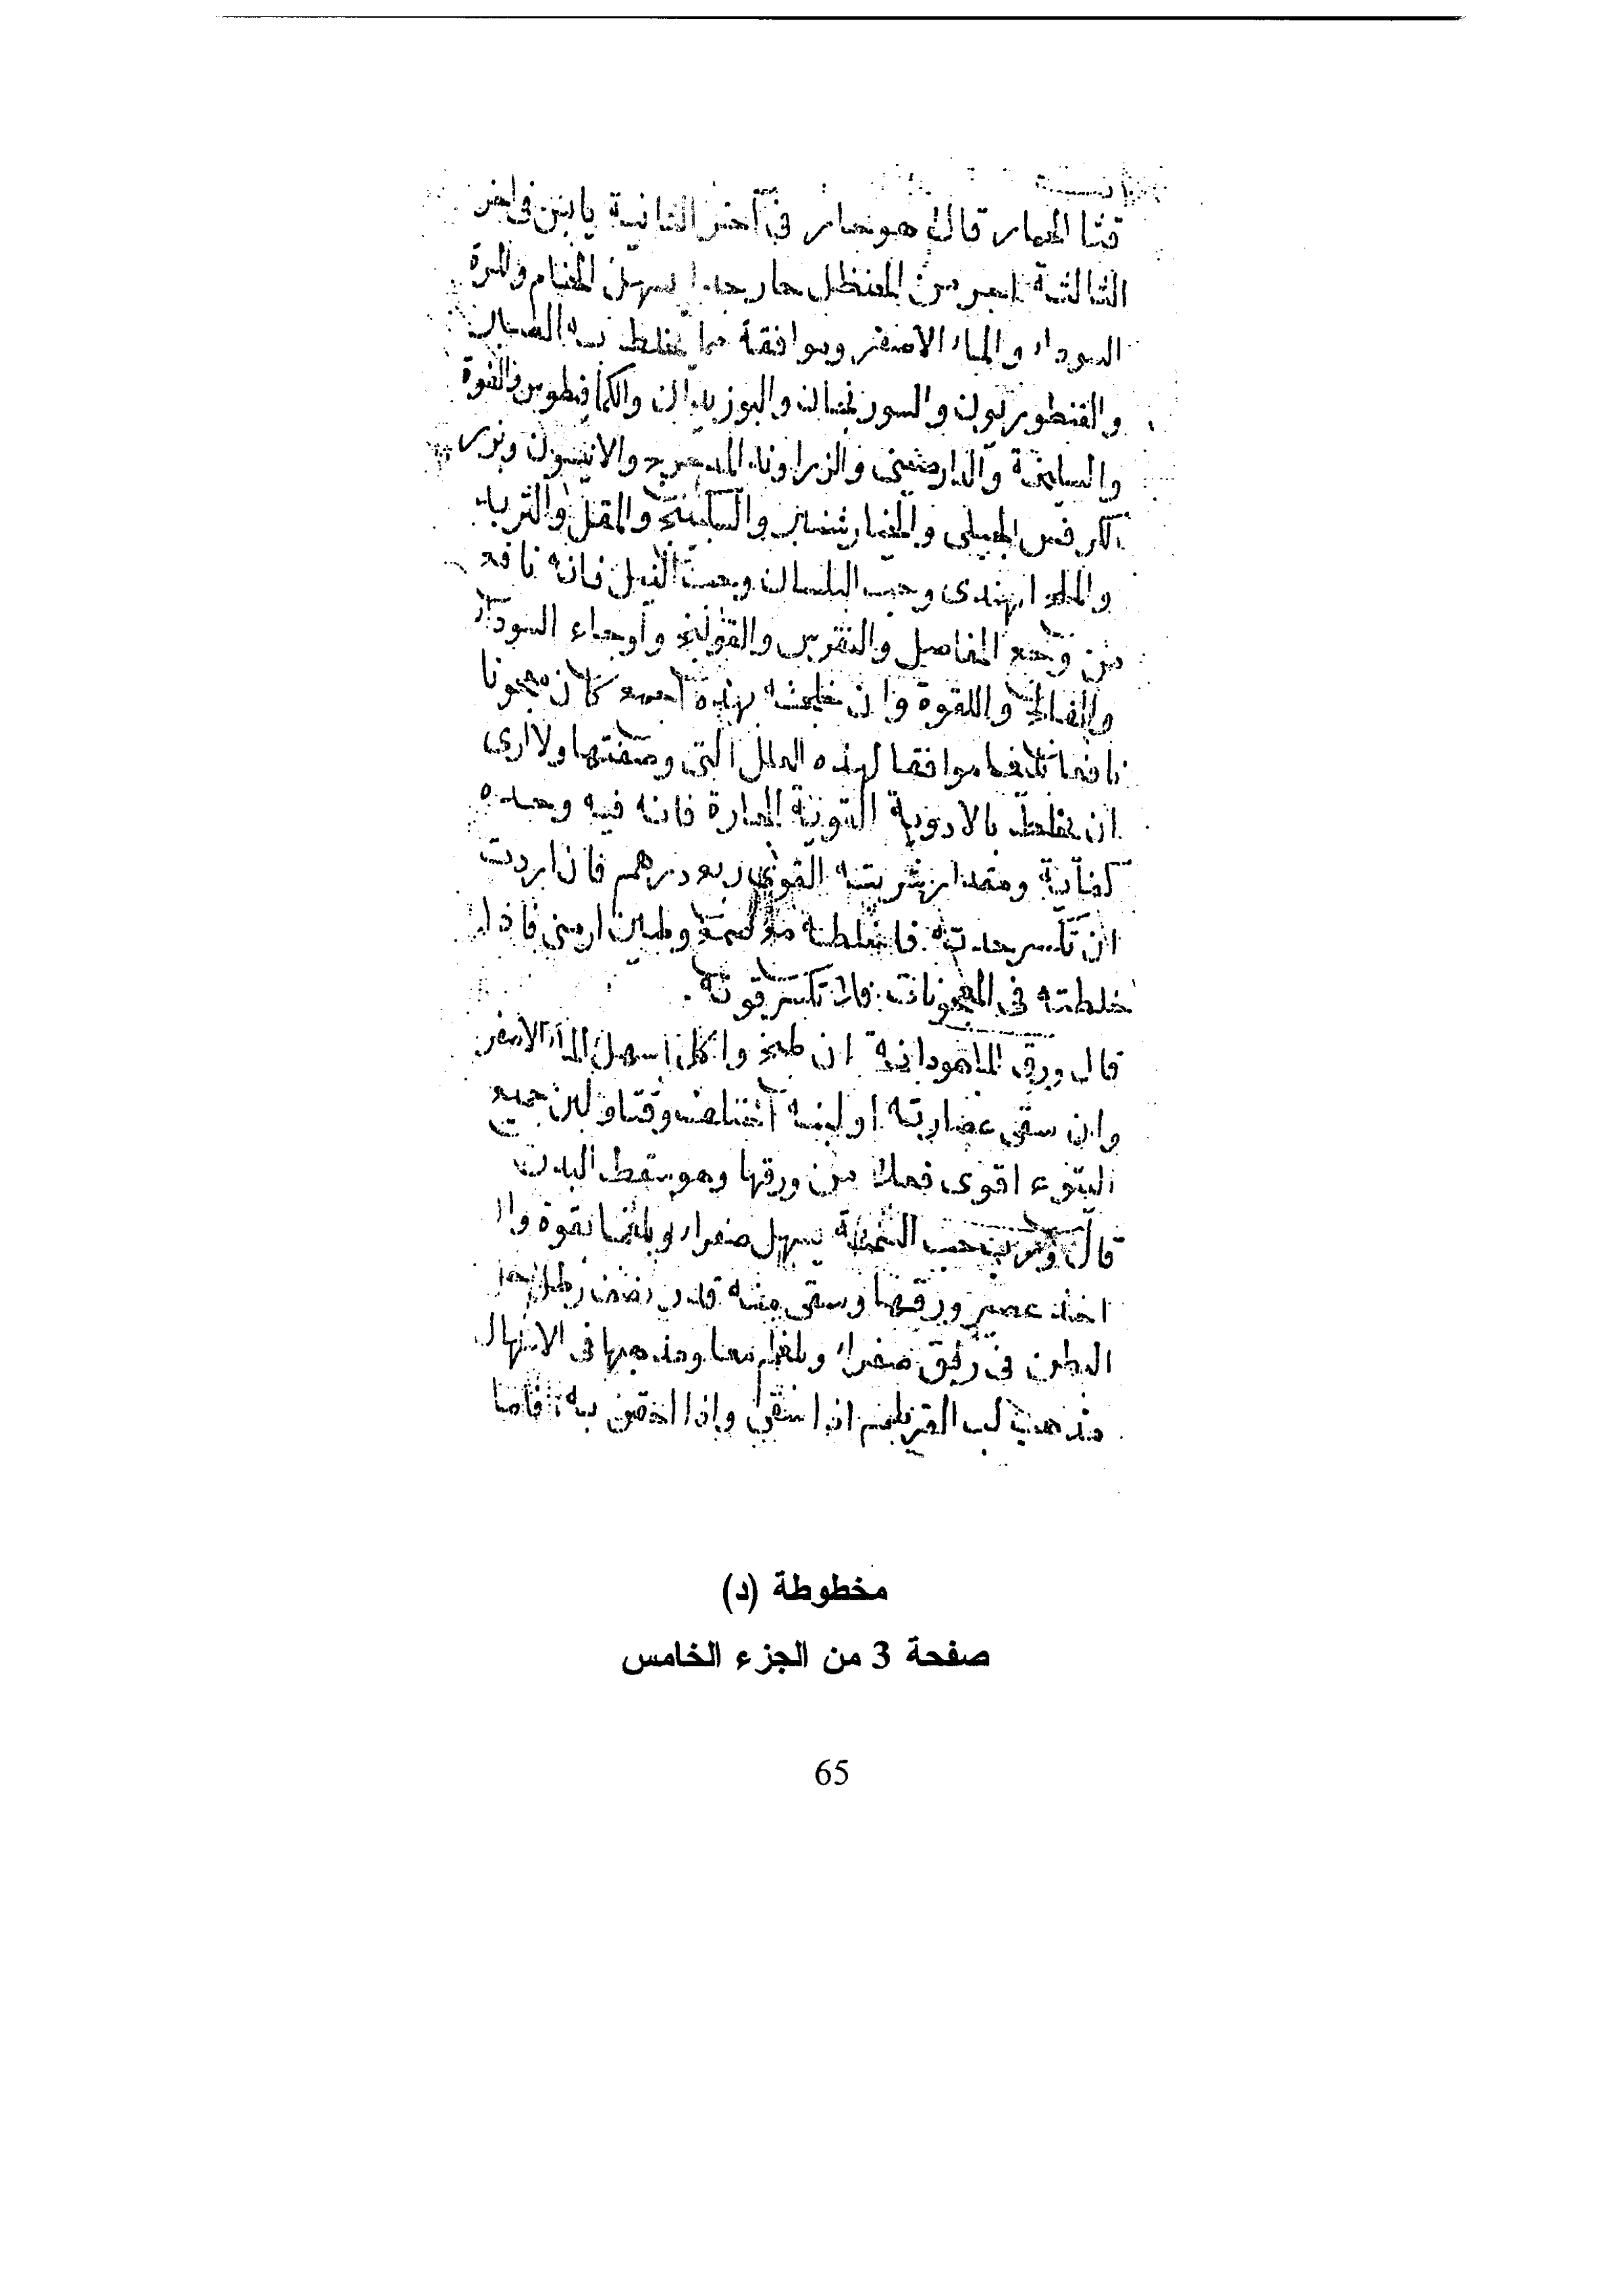 قثا الحمار قال هو حار في آخر الثانية يابس في اخر
الثالثة من الحنظل حار جدا يسهل الخام والمرة
السوداء والماء الاصفر وموافقة مما يخلط به الصبر
والقنطوريون والسورنجان والبوزيدان والكمافيطوس والفوة
والسليخة والدارصيني والزراوند المدحرج والانيسون وبزر
الكرفس الجبلي والخيارشنبر والسكبينج والمقل والتربد
والملح الهندى وحب البلسان وحب النيل فانه نافع
من وجع المفاصل والنقرس والقولنج وأوجاع السوداء
والفالج واللقوة وان خلطته بهذه اجمع كان معجونا
نافعا موافقا لهذه العلل التي وصفتها ولا ارى
ان يخلط بالادوية القوية الحارة فانه فيه وحده
كفاية ومقدار شربته القوى ربع درهم فان اردت
ان تكسر حدته فاخلطه مع وطين ارمني فاذا
خلطته في المعجونات فلا تكسر قوته.
قال ورق الماهودانة ان طبخ واكل اسهل الماء الاصفر
وان سقى عصارته او لبنه وقتا ولبن جميع
اليتوع اقوى فعلا من ورقها وهو يسقط البدن
قال حب يسهل صفراء وبلغما بقوة وان
اخذ عصير ورقها وسقى منه قدر نصف رطل
البطن في رفق صفراء وبلغم معا ومذهبها في الاسهال
مذهب لب القرطم اذا سقى واذا احتقن به فاما
مخطوطة (د)
صفحة 3 من الجزء الخامس
65